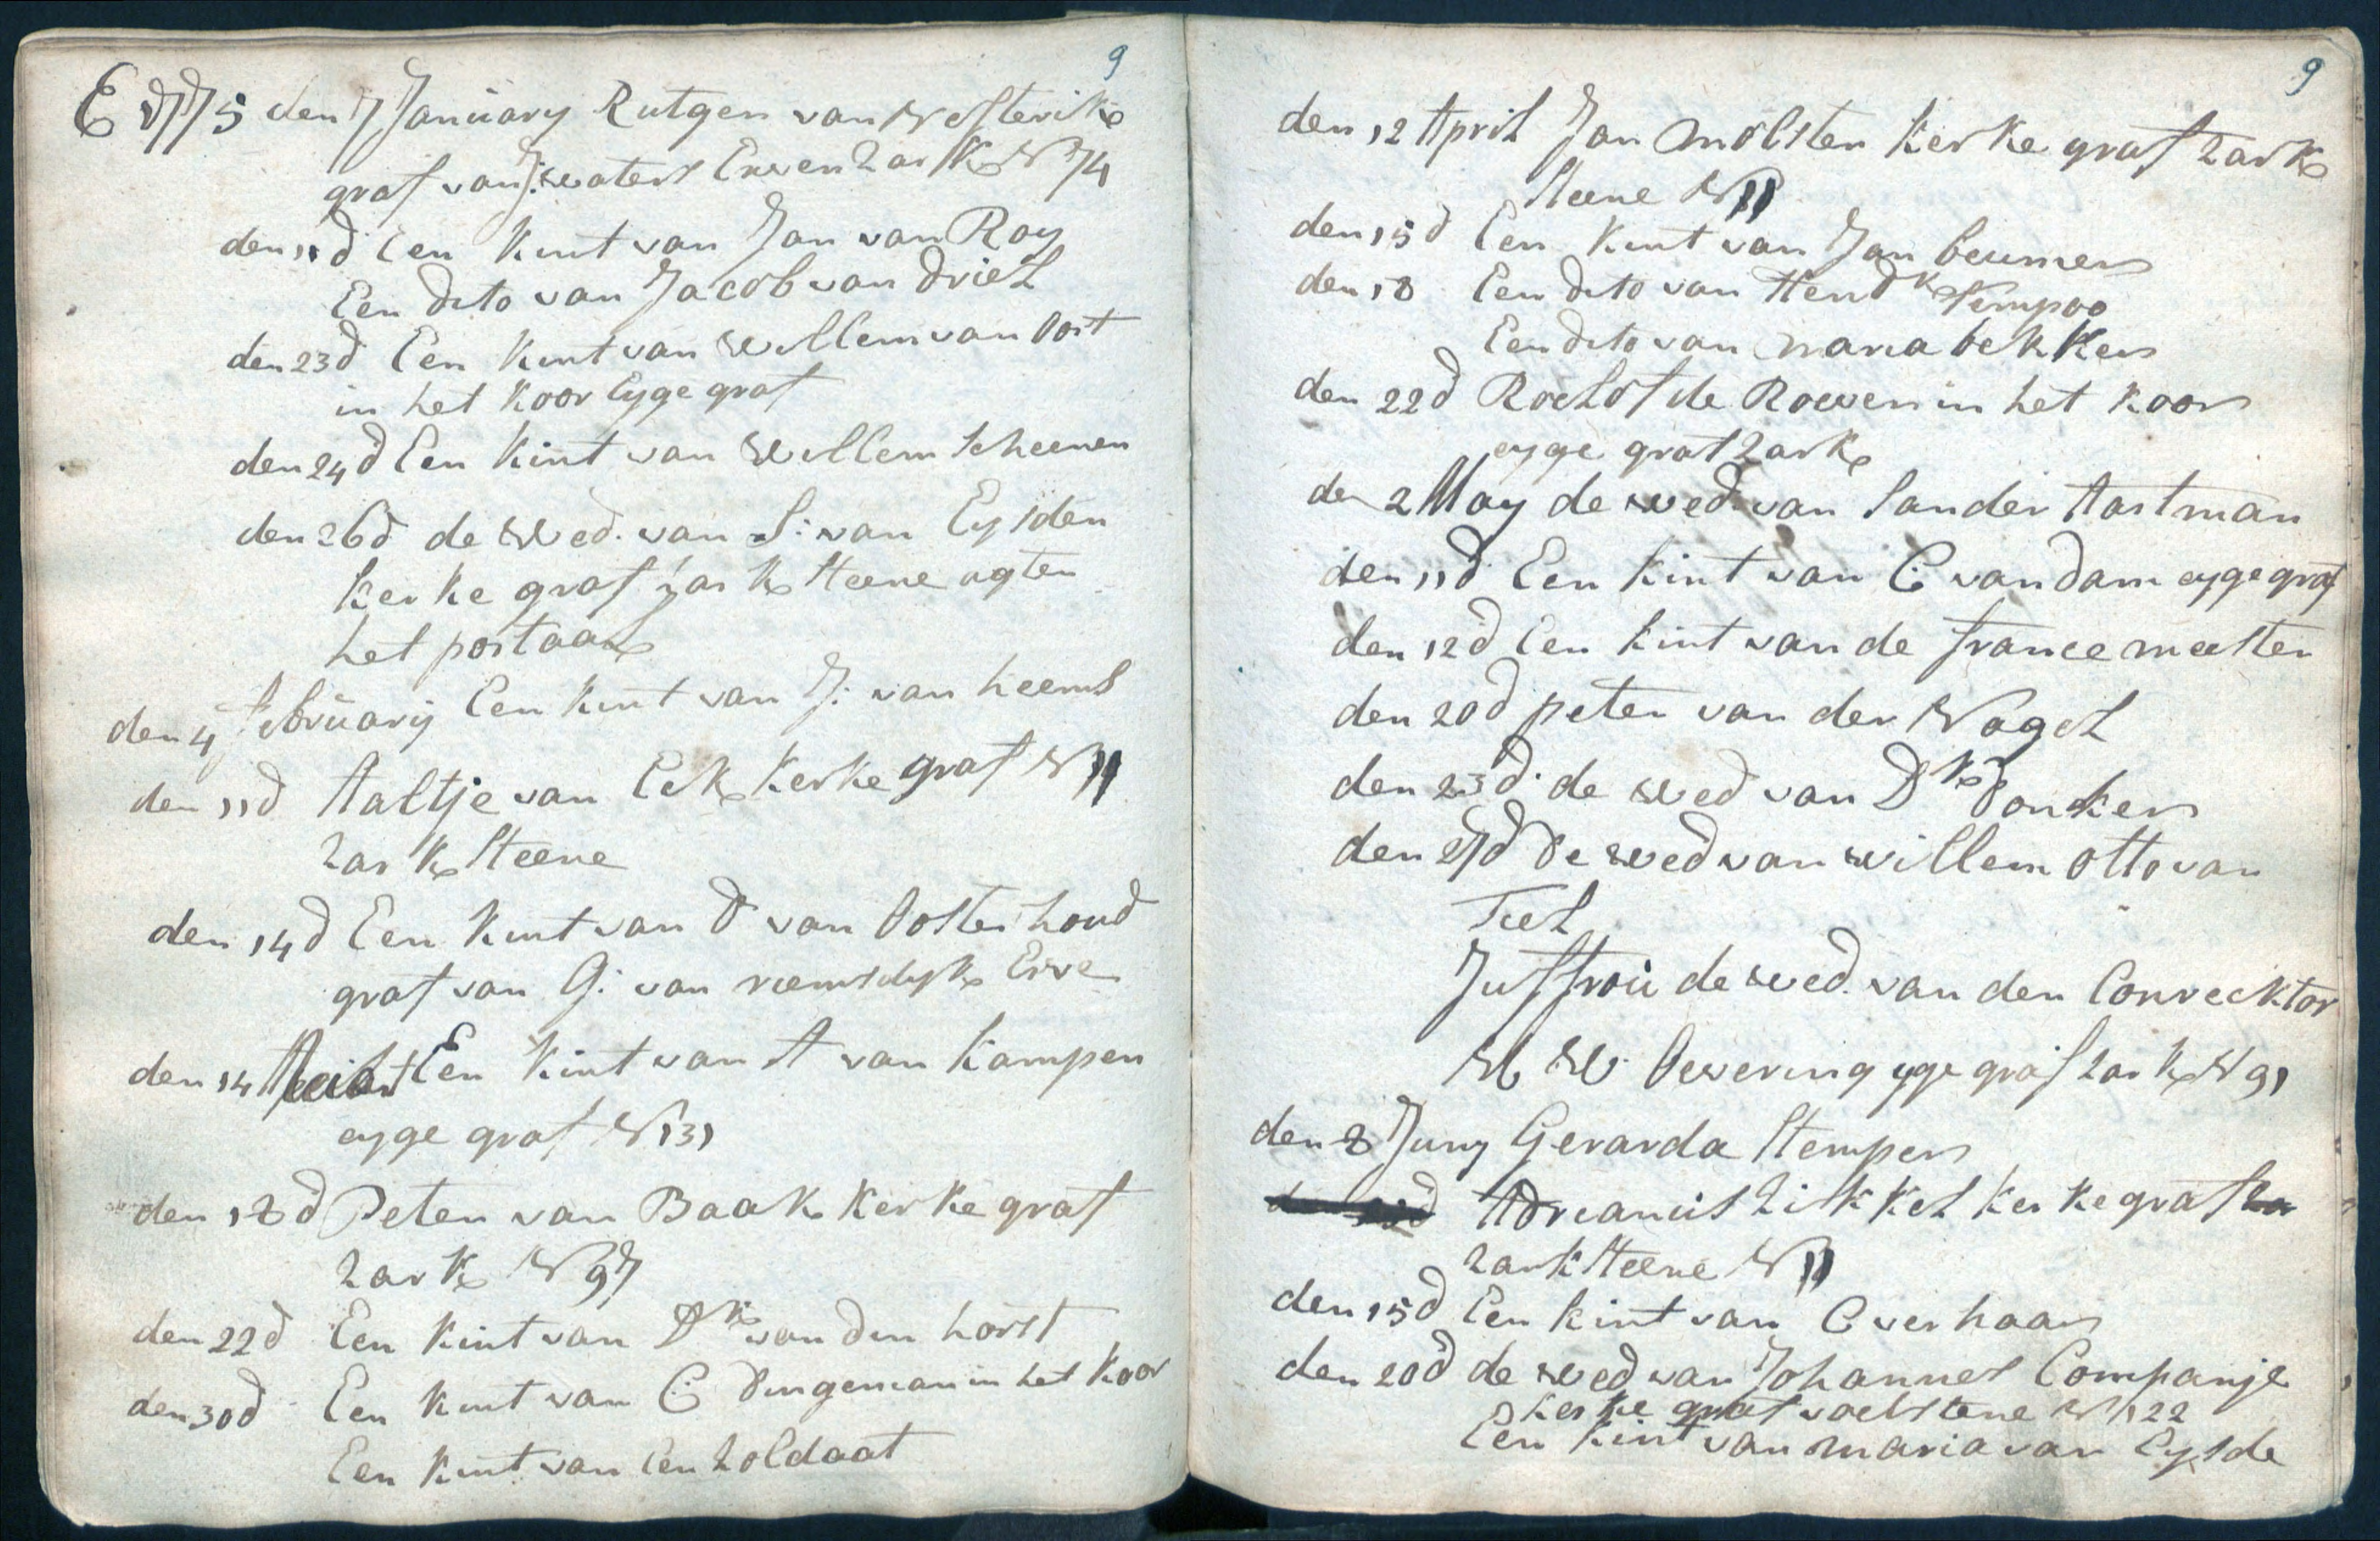 9
E 1775 den 7 January Rutger van Westerik
graf van J: waters Erven Zark N 74
den 11 d Een Kint van Jan van Roy
Een dito van Jacob van driel
den 23 d Een Kint van Willem van Oort
in het Koor Eyge graf
den 24 d Een Kint van Willem Scheenen
den 26 d de Wed. van S: van Eysden
Kerke graf zark Steene agter
het portaal
den 4 february Een Kint van J: van heems
den 11 d Aaltje van Eck Kerke graf N 11
Zark Steene
den 14 d Een Kint van D van Oosterhoud
graf van G: van reemsdyk Erve
den 14 Een Kint van A van Kampen
eyge graf N 131
den 18 d Peter van Baak Kerke graf
Zark N 97
den 22 d Een Kint van Dk van den horst
den 30 d Een Kint van C dingeman in het Koor
Een Kint van een Zoldaat
9
den 12 April Jan Molster Kerke graf Zark
Steene N 11
den 15 d Een Kint van Jan beumer
den 18 Een dito van Hendk Kempoo
Een dito van maria bekker
den 22 d Roelof de Rower in het Koor
eyge graf Zark
den 2 May de wed. van Sander Aartman
den 11 d Een Kint van C van dam eyge graf
den 12 d Een kint van de france meester
den 20 d peter van der Nagel
den 23 d de wed van Dk donker
den 27 d de wed van willem otto van
Tiel
Juffrou de wed. van den Conrecktor
W Bevering yge graf Zark N 91
den 8 Juny Gerarda Stemper
Adreanus Zikkel Kerke graf
Zark Steene N 11
den 15 d Een kint van C verhaar
den 20 d de wed van Johannes Companje
Kerke graf voetstene N 122
Een Kint van maria van Eysde